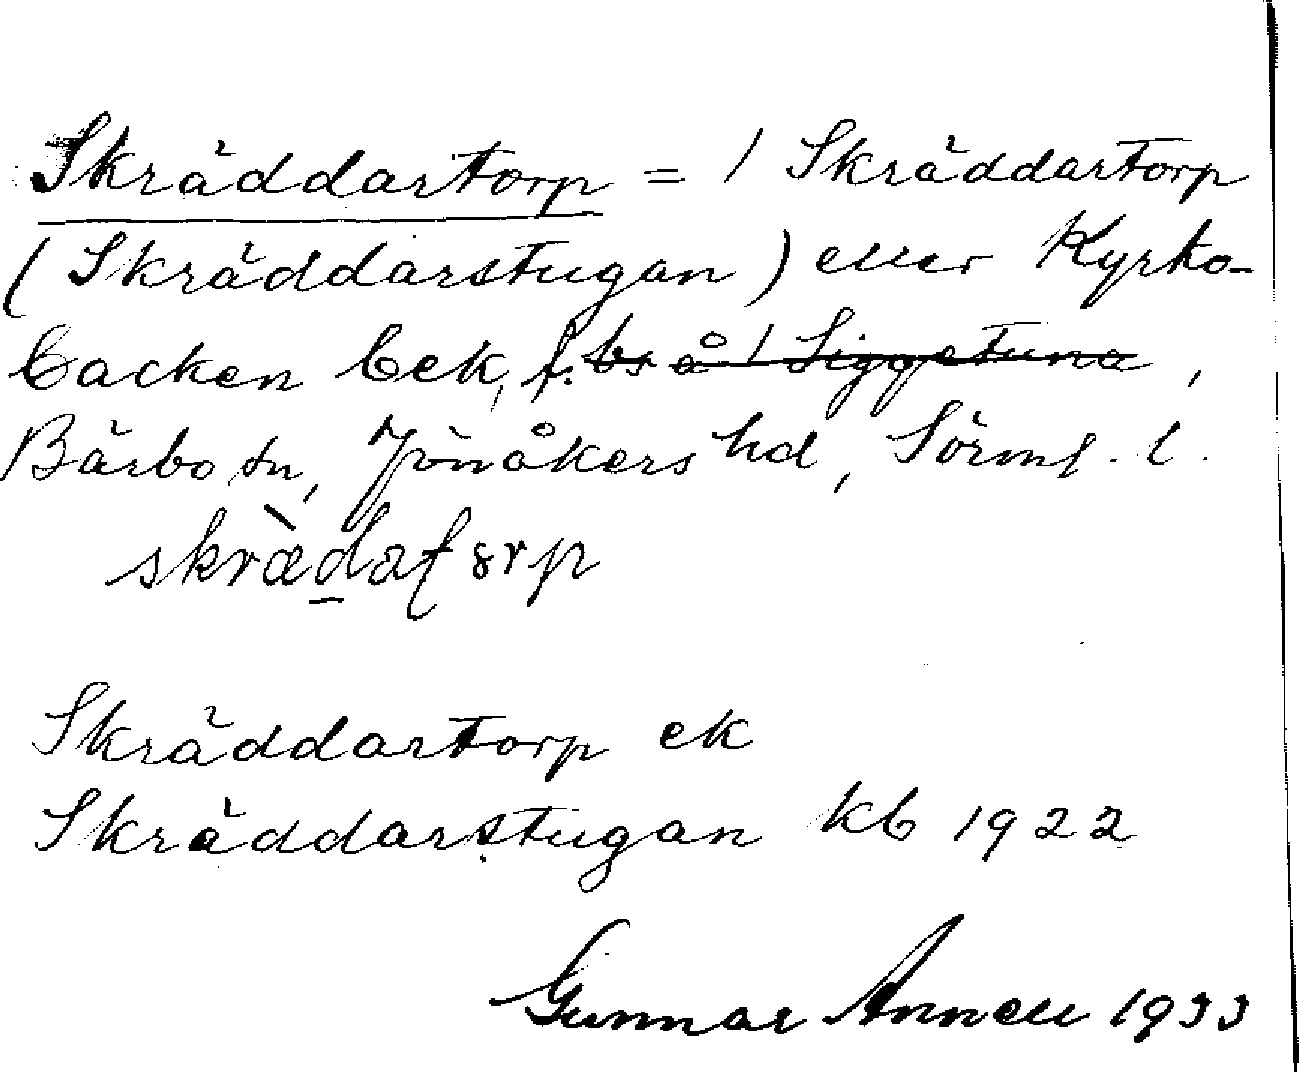 Skräddartorp = / Skräddartorp
(Skräddarstugan) eller Kyrko-
backen bek, f. bs å / Siggetuna,
Bärbo sn, Jönåkers hd, Sörml. l.
skrædaʈɔrp
Skräddartorp ek
Skräddarstugan kb 1922
Gunnar Annell 1933